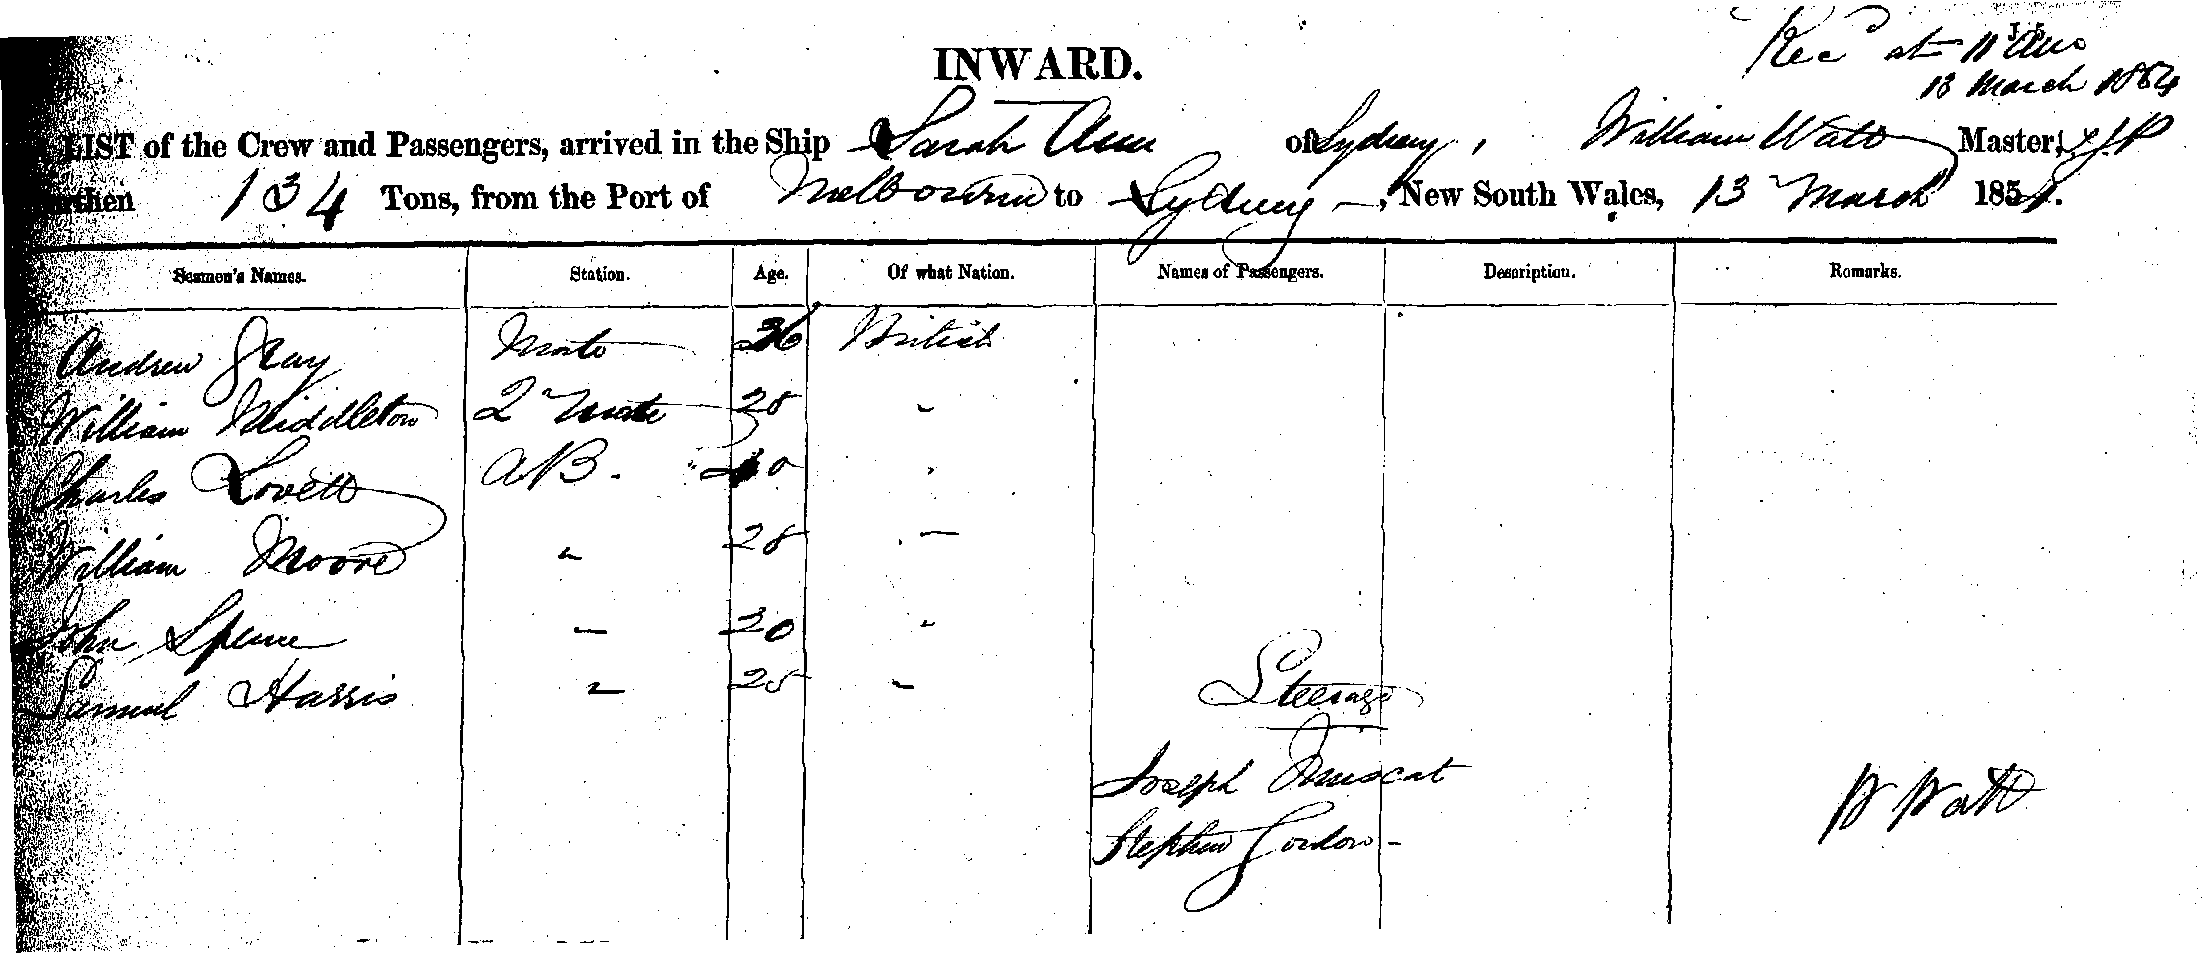 Rec at 11
13 March 1854
INWARD.
LIST of the Crew and Passengers, arrived in the Ship Sarah Ann of Sydney, William Watt Master,
Burthen 134 Tons, from the Port of Melbourne to Sydney, New South Wales, 13 March 1854.
Seamen's Names. Station. Age. Of what Nation. Names of Passengers. Description. Remarks.
Andrew Gray Mate 36 British
William Middleton 2 Mate 28 "
Charles Lovett AB. "
William Moore " 28 "
John Spence " 20 "
Samuel Harris " 25 "
Steerage
Joseph Muscat
Stephen Gordon -
W Watt